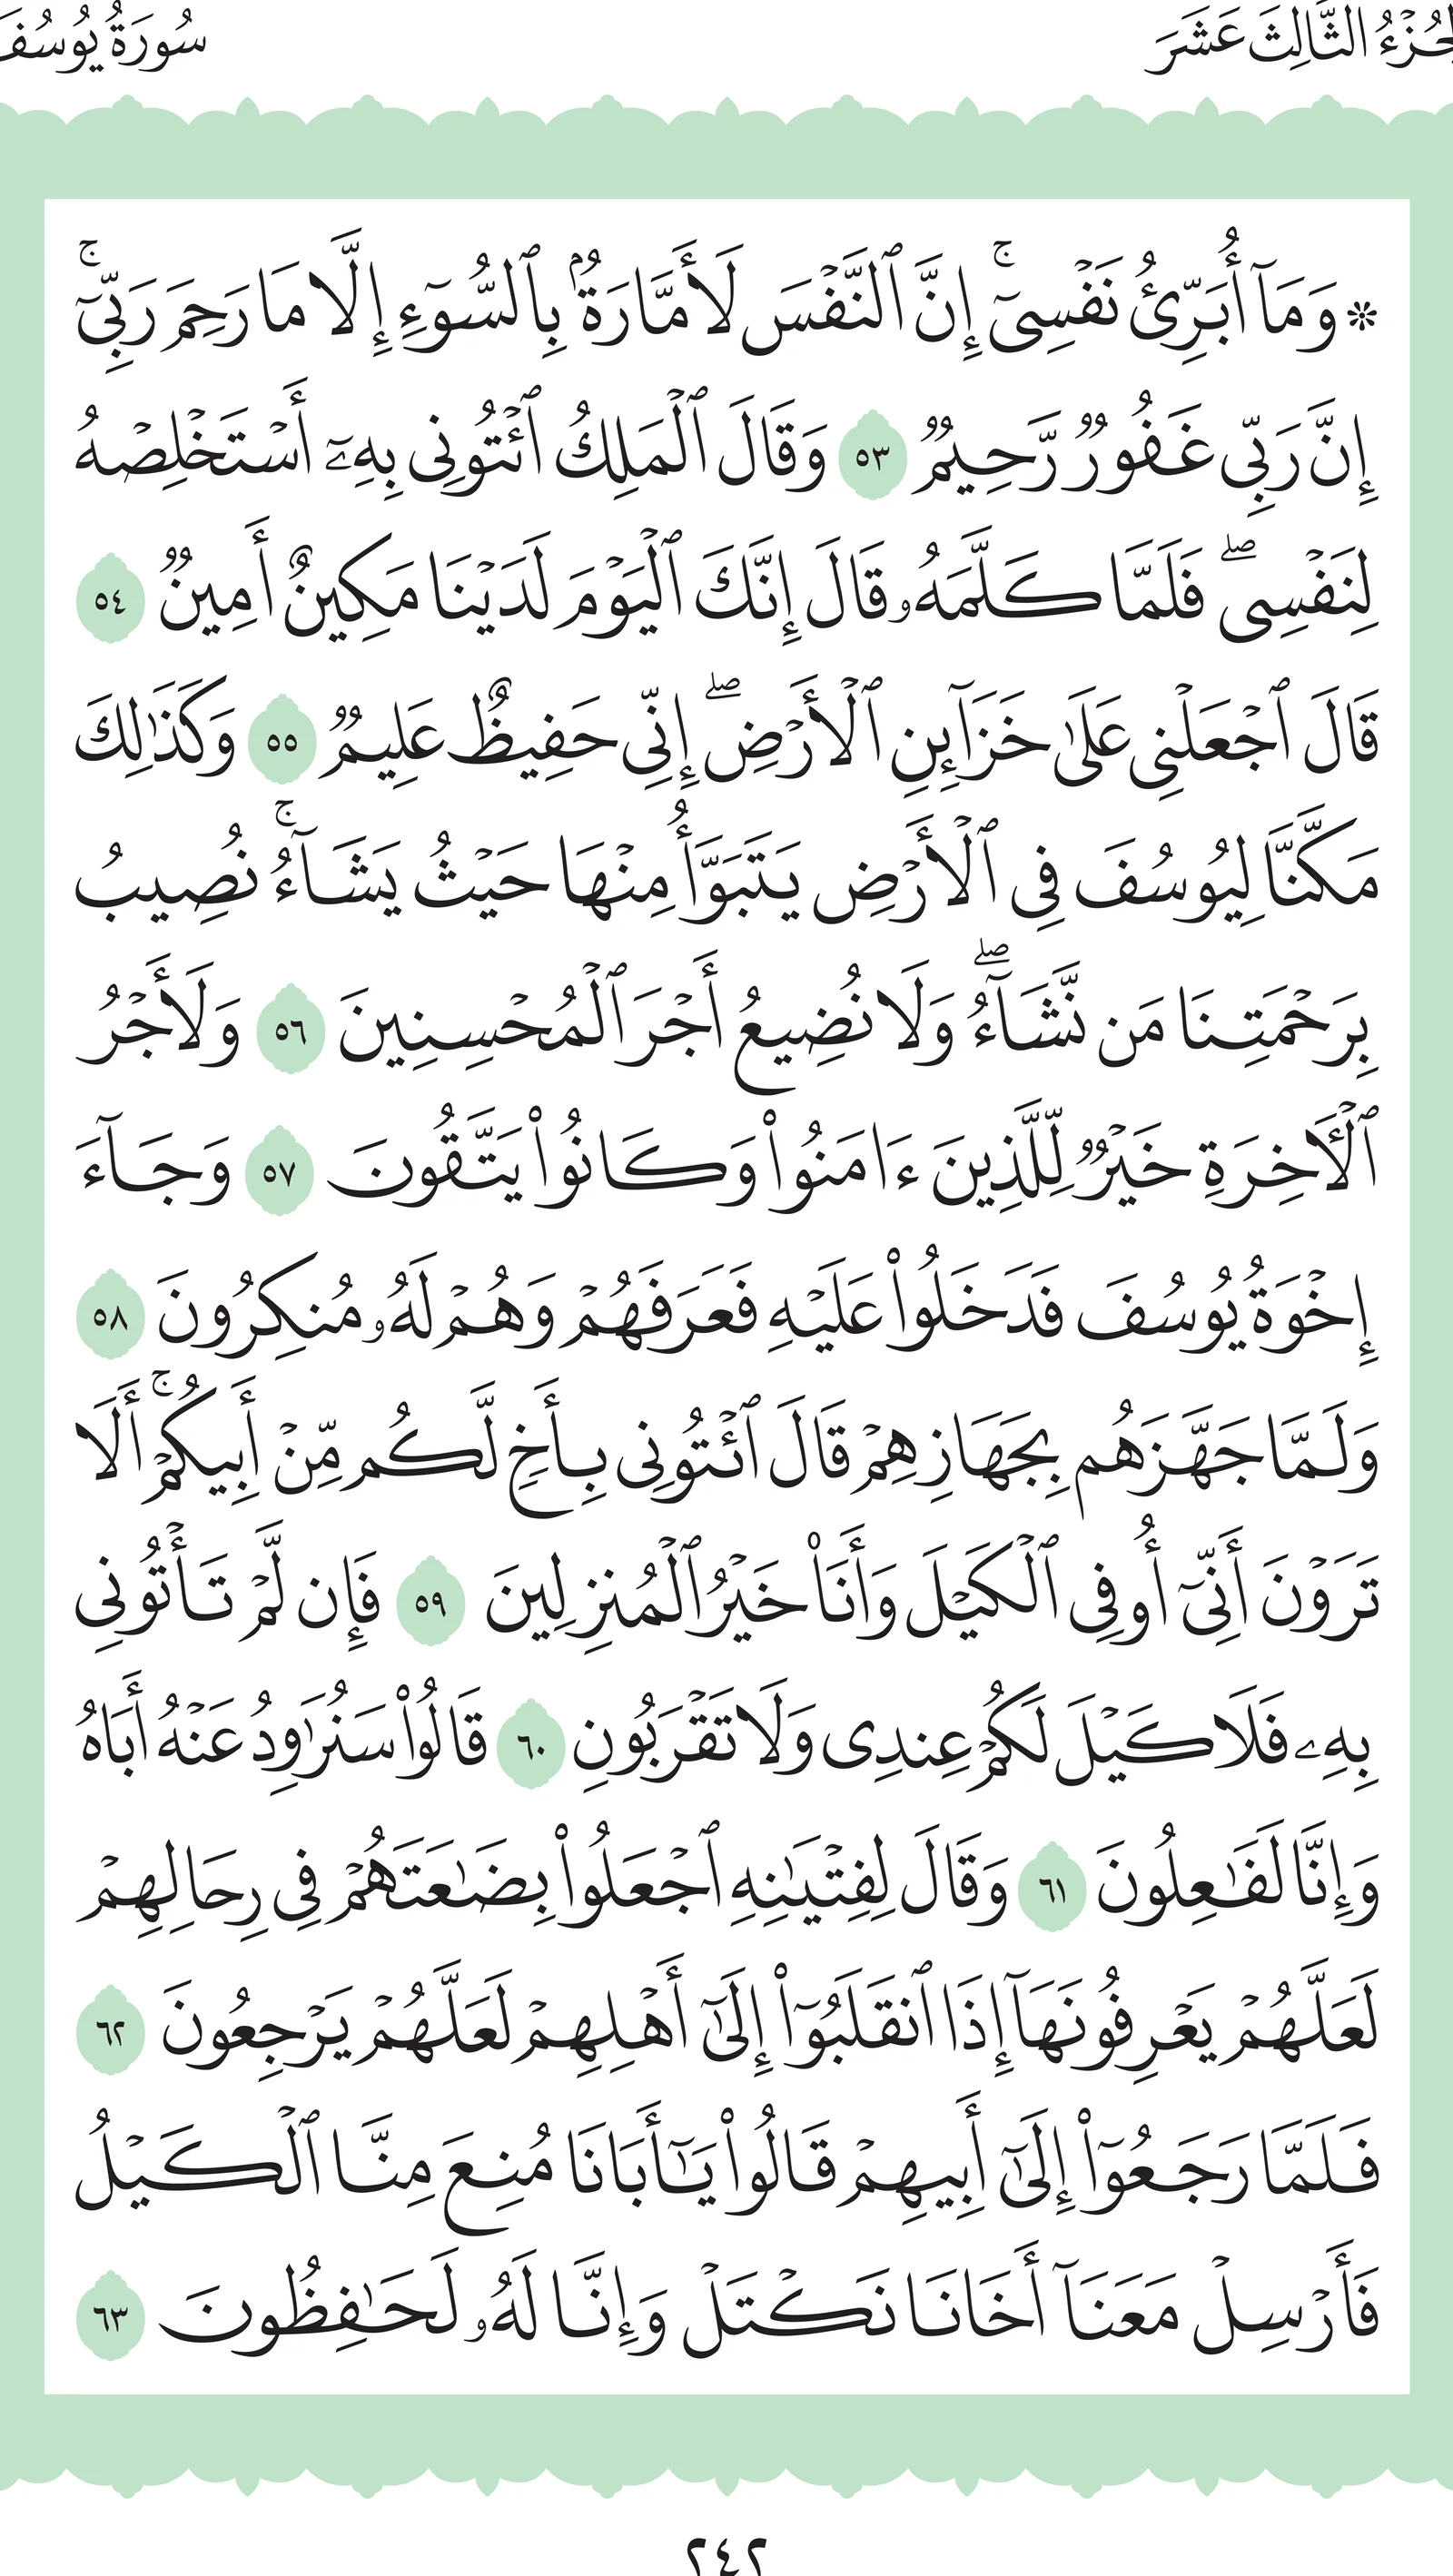 الجُزْءُ الثَّالِثَ عَشَرَ
سُورَةُ يُوسُفَ
۞ وَمَآ أُبَرِّئُ نَفْسِىٓ ۚ إِنَّ ٱلنَّفْسَ لَأَمَّارَةٌۢ بِٱلسُّوٓءِ إِلَّا مَا رَحِمَ رَبِّىٓ ۚ
إِنَّ رَبِّى غَفُورٌ رَّحِيمٌ ٥٣ وَقَالَ ٱلْمَلِكُ ٱئْتُونِى بِهِۦٓ أَسْتَخْلِصْهُ
لِنَفْسِى ۖ فَلَمَّا كَلَّمَهُۥ قَالَ إِنَّكَ ٱلْيَوْمَ لَدَيْنَا مَكِينٌ أَمِينٌ ٥٤
قَالَ ٱجْعَلْنِى عَلَىٰ خَزَآئِنِ ٱلْأَرْضِ ۖ إِنِّى حَفِيظٌ عَلِيمٌ ٥٥ وَكَذَٰلِكَ
مَكَّنَّا لِيُوسُفَ فِى ٱلْأَرْضِ يَتَبَوَّأُ مِنْهَا حَيْثُ يَشَآءُ ۚ نُصِيبُ
بِرَحْمَتِنَا مَن نَّشَآءُ ۖ وَلَا نُضِيعُ أَجْرَ ٱلْمُحْسِنِينَ ٥٦ وَلَأَجْرُ
ٱلْـَٔاخِرَةِ خَيْرٌ لِّلَّذِينَ ءَامَنُوا۟ وَكَانُوا۟ يَتَّقُونَ ٥٧ وَجَآءَ
إِخْوَةُ يُوسُفَ فَدَخَلُوا۟ عَلَيْهِ فَعَرَفَهُمْ وَهُمْ لَهُۥ مُنكِرُونَ ٥٨
وَلَمَّا جَهَّزَهُم بِجَهَازِهِمْ قَالَ ٱئْتُونِى بِأَخٍ لَّكُم مِّنْ أَبِيكُمْ ۚ أَلَا
تَرَوْنَ أَنِّىٓ أُوفِى ٱلْكَيْلَ وَأَنَا۠ خَيْرُ ٱلْمُنزِلِينَ ٥٩ فَإِن لَّمْ تَأْتُونِى
بِهِۦ فَلَا كَيْلَ لَكُمْ عِندِى وَلَا تَقْرَبُونِ ٦٠ قَالُوا۟ سَنُرَٰوِدُ عَنْهُ أَبَاهُ
وَإِنَّا لَفَـٰعِلُونَ ٦١ وَقَالَ لِفِتْيَـٰنِهِ ٱجْعَلُوا۟ بِضَـٰعَتَهُمْ فِى رِحَالِهِمْ
لَعَلَّهُمْ يَعْرِفُونَهَآ إِذَا ٱنقَلَبُوٓا۟ إِلَىٰٓ أَهْلِهِمْ لَعَلَّهُمْ يَرْجِعُونَ ٦٢
فَلَمَّا رَجَعُوٓا۟ إِلَىٰٓ أَبِيهِمْ قَالُوا۟ يَـٰٓأَبَانَا مُنِعَ مِنَّا ٱلْكَيْلُ
فَأَرْسِلْ مَعَنَآ أَخَانَا نَكْتَلْ وَإِنَّا لَهُۥ لَحَـٰفِظُونَ ٦٣
٢٤٢